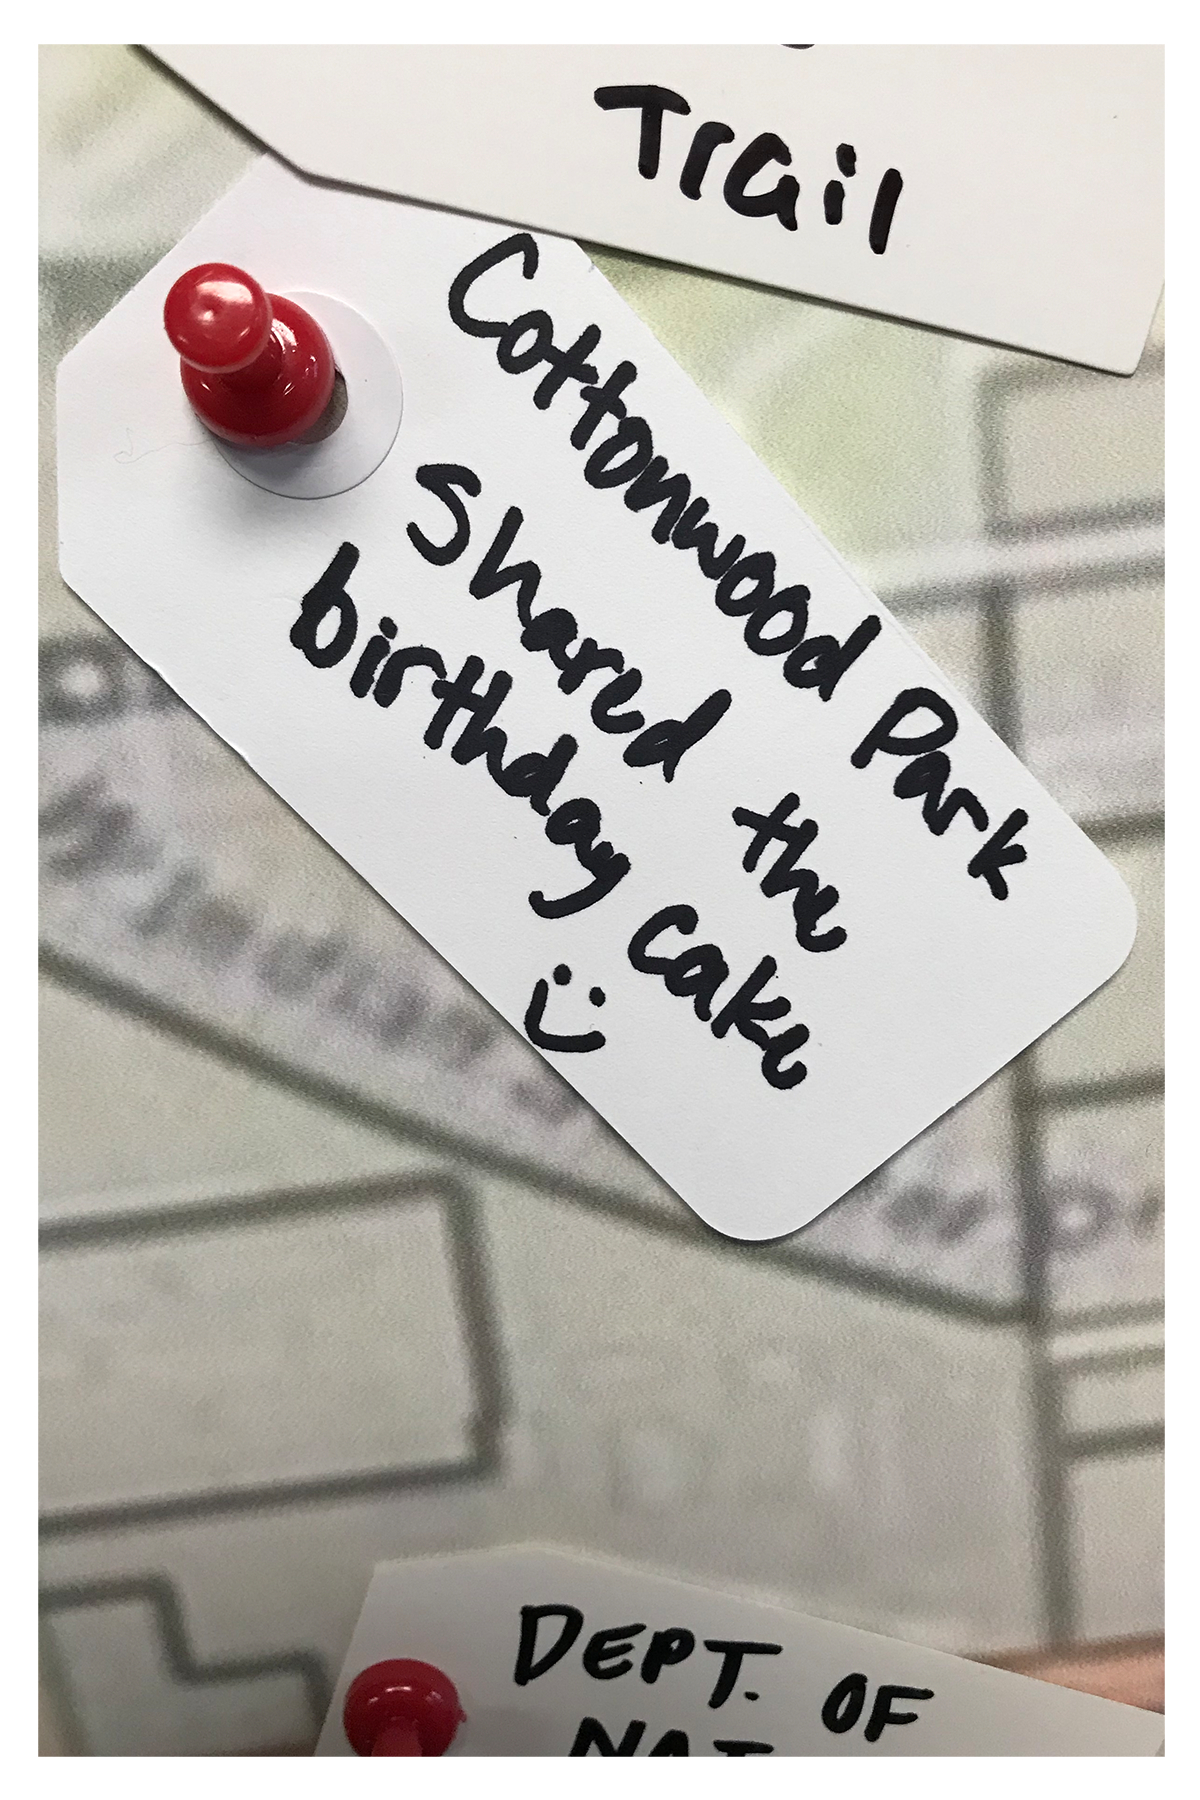 Trail
Cottonwood Park
Shared the
birthday cake
:)
DEPT. OF
NAT